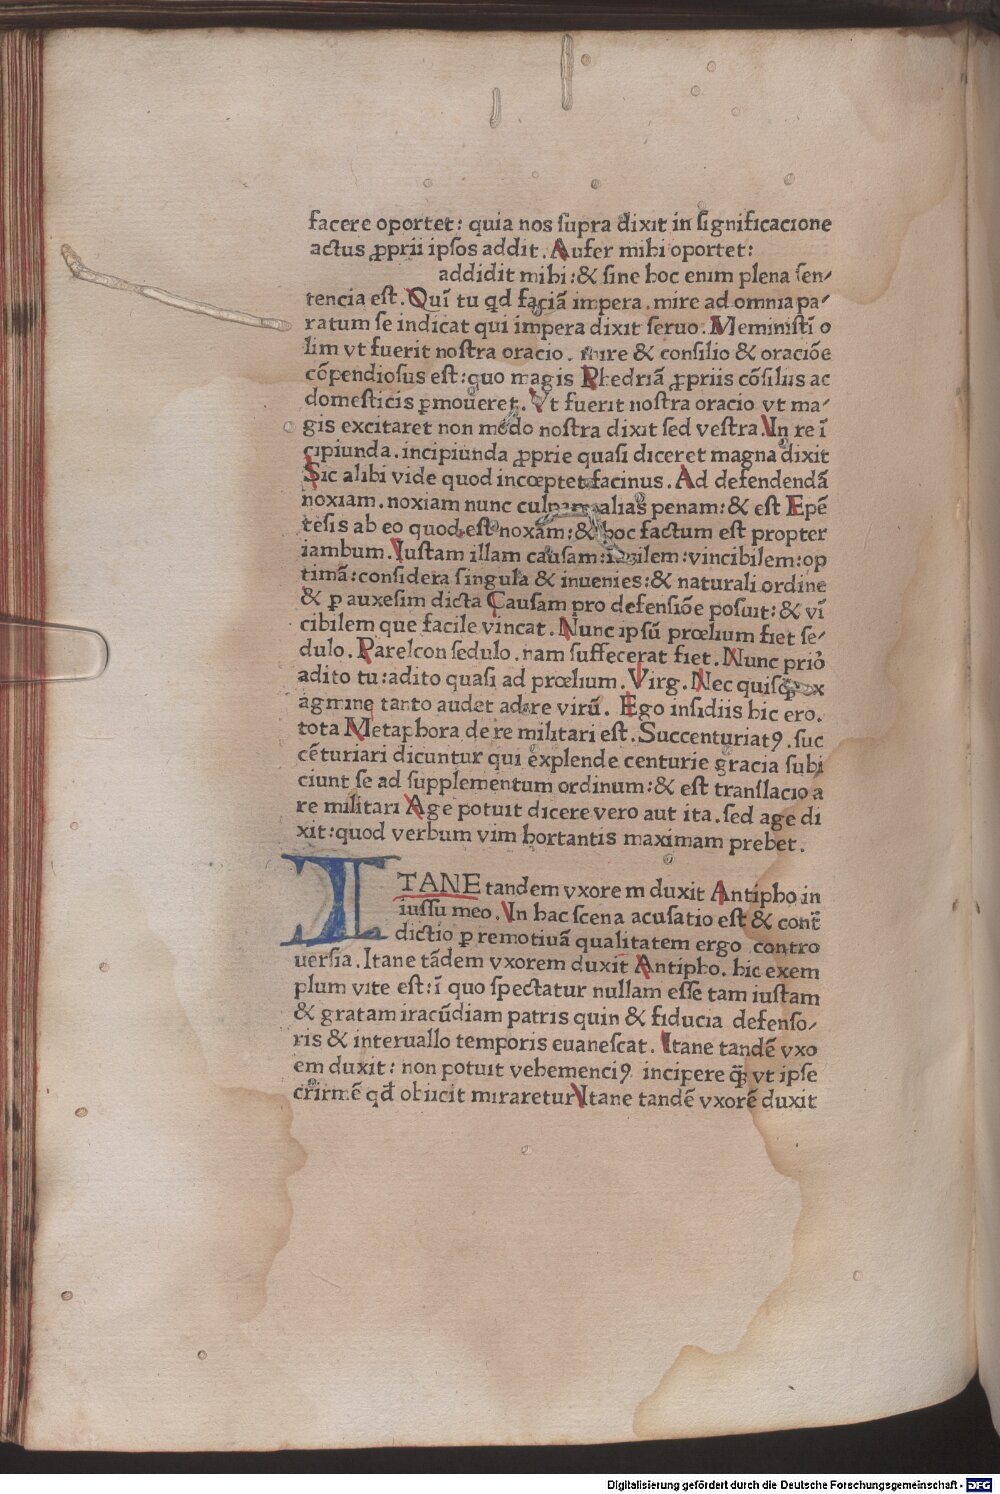 facere oportet: quia nos ſupra dixit in ſignificacione
actus ꝓprii ipſos addit. Aufer mihi oportet:
addidit mihi: & ſine hoc enim plena ſen⸗
tencia eſt. Quī tu qd faciā impera. mire ad omnia pa⸗
ratum ſe indicat qui impera dixit ſeruo. Meminiſtī o
lim vt fuerit noſtra oracio. mire & conſilio & oraciōe
cōpendioſus eſt: quo magis Phedriā ꝓpriis cōſiliis ac
domeſticis ꝑmoueret. Vt fuerit noſtra oracio vt ma⸗
gis excitaret non modo noſtra dixit ſed veſtra. In re ī
cipiunda. incipiunda ꝓprie quaſi diceret magna dixit
Sic alibi vide quod incœptet facinus. Ad defendendā
noxiam. noxiam nunc culpam alias penam: & eſt Epē
teſis ab eo quod eſt noxam: & hoc factum eſt propter
iambum. Iuſtam illam cauſam: vincibilem: op
timā: conſidera ſingula & inuenies: & naturali ordine
& ꝑ auxeſim dicta Cauſam pro defenſiōe poſuit: & vī
cibilem que facile vincat. Nunc ipſū prœlium fiet ſe⸗
dulo. Parelcon ſedulo. nam ſuffecerat fiet. Nunc priō
adito tu: adito quaſi ad prœlium. Virg. Nec quiſꝙ ex
agmine tanto audet adire virū. Ego inſidiis hic ero.
tota Metaphora de re militari eſt. Succenturiatꝰ. ſuc
cēturiari dicuntur qui explende centurie gracia ſubi
ciunt ſe ad ſupplementum ordinum: & eſt tranſlacio a
re militari Age potuit dicere vero aut ita. ſed age di
xit: quod verbum vim hortantis maximam prebet.
ITANE tandem vxore m duxit Antipho in
iuſſu meo. In hac ſcena acuſatio eſt & cont̄
dictio ꝑ remotiuā qualitatem ergo contro
uerſia. Itane tādem vxorem duxit Antipho. hic exem
plum vite eſt: ī quo ſpectatur nullam eſſe tam iuſtam
& gratam iracūdiam patris quin & fiducia defenſo⸗
ris & interuallo temporis euaneſcat. Itane tandē vxo
em duxit: non potuit vehemenciꝰ incipere ꝙ̄ vt ipſe
crimē qđ obiicit miraretur Itane tandē vxorē duxit
Digitalisierung gefördert durch die Deutsche Forschungsgemeinschaft - DFG